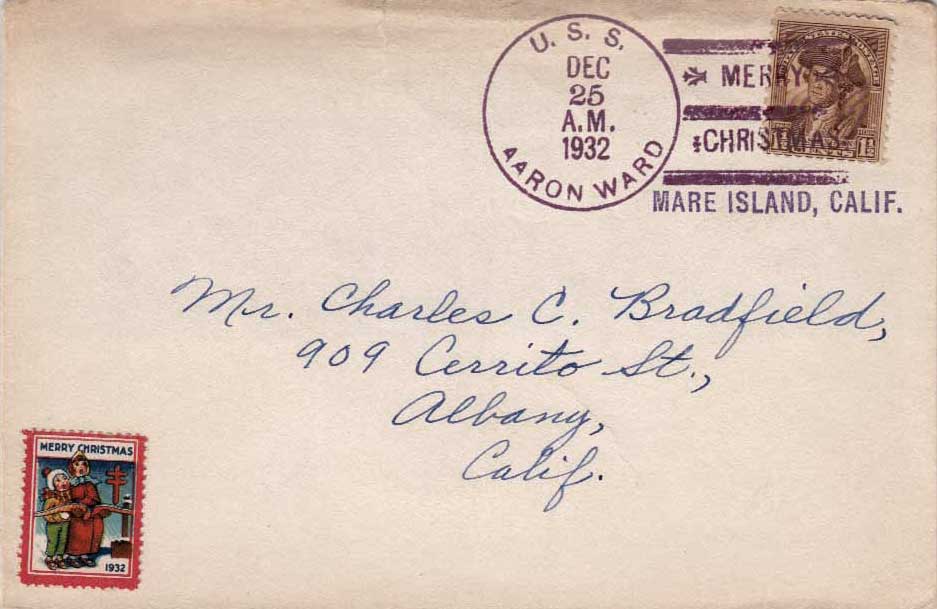 U. S. S.
DEC
25
A.M.
1932
AARON WARD
MERRY
CHRISTMAS
MARE ISLAND, CALIF.
Mr. Charles C. Bradfield,
909 Cerrito St.,
Albany,
Calif.
MERRY CHRISTMAS
1932